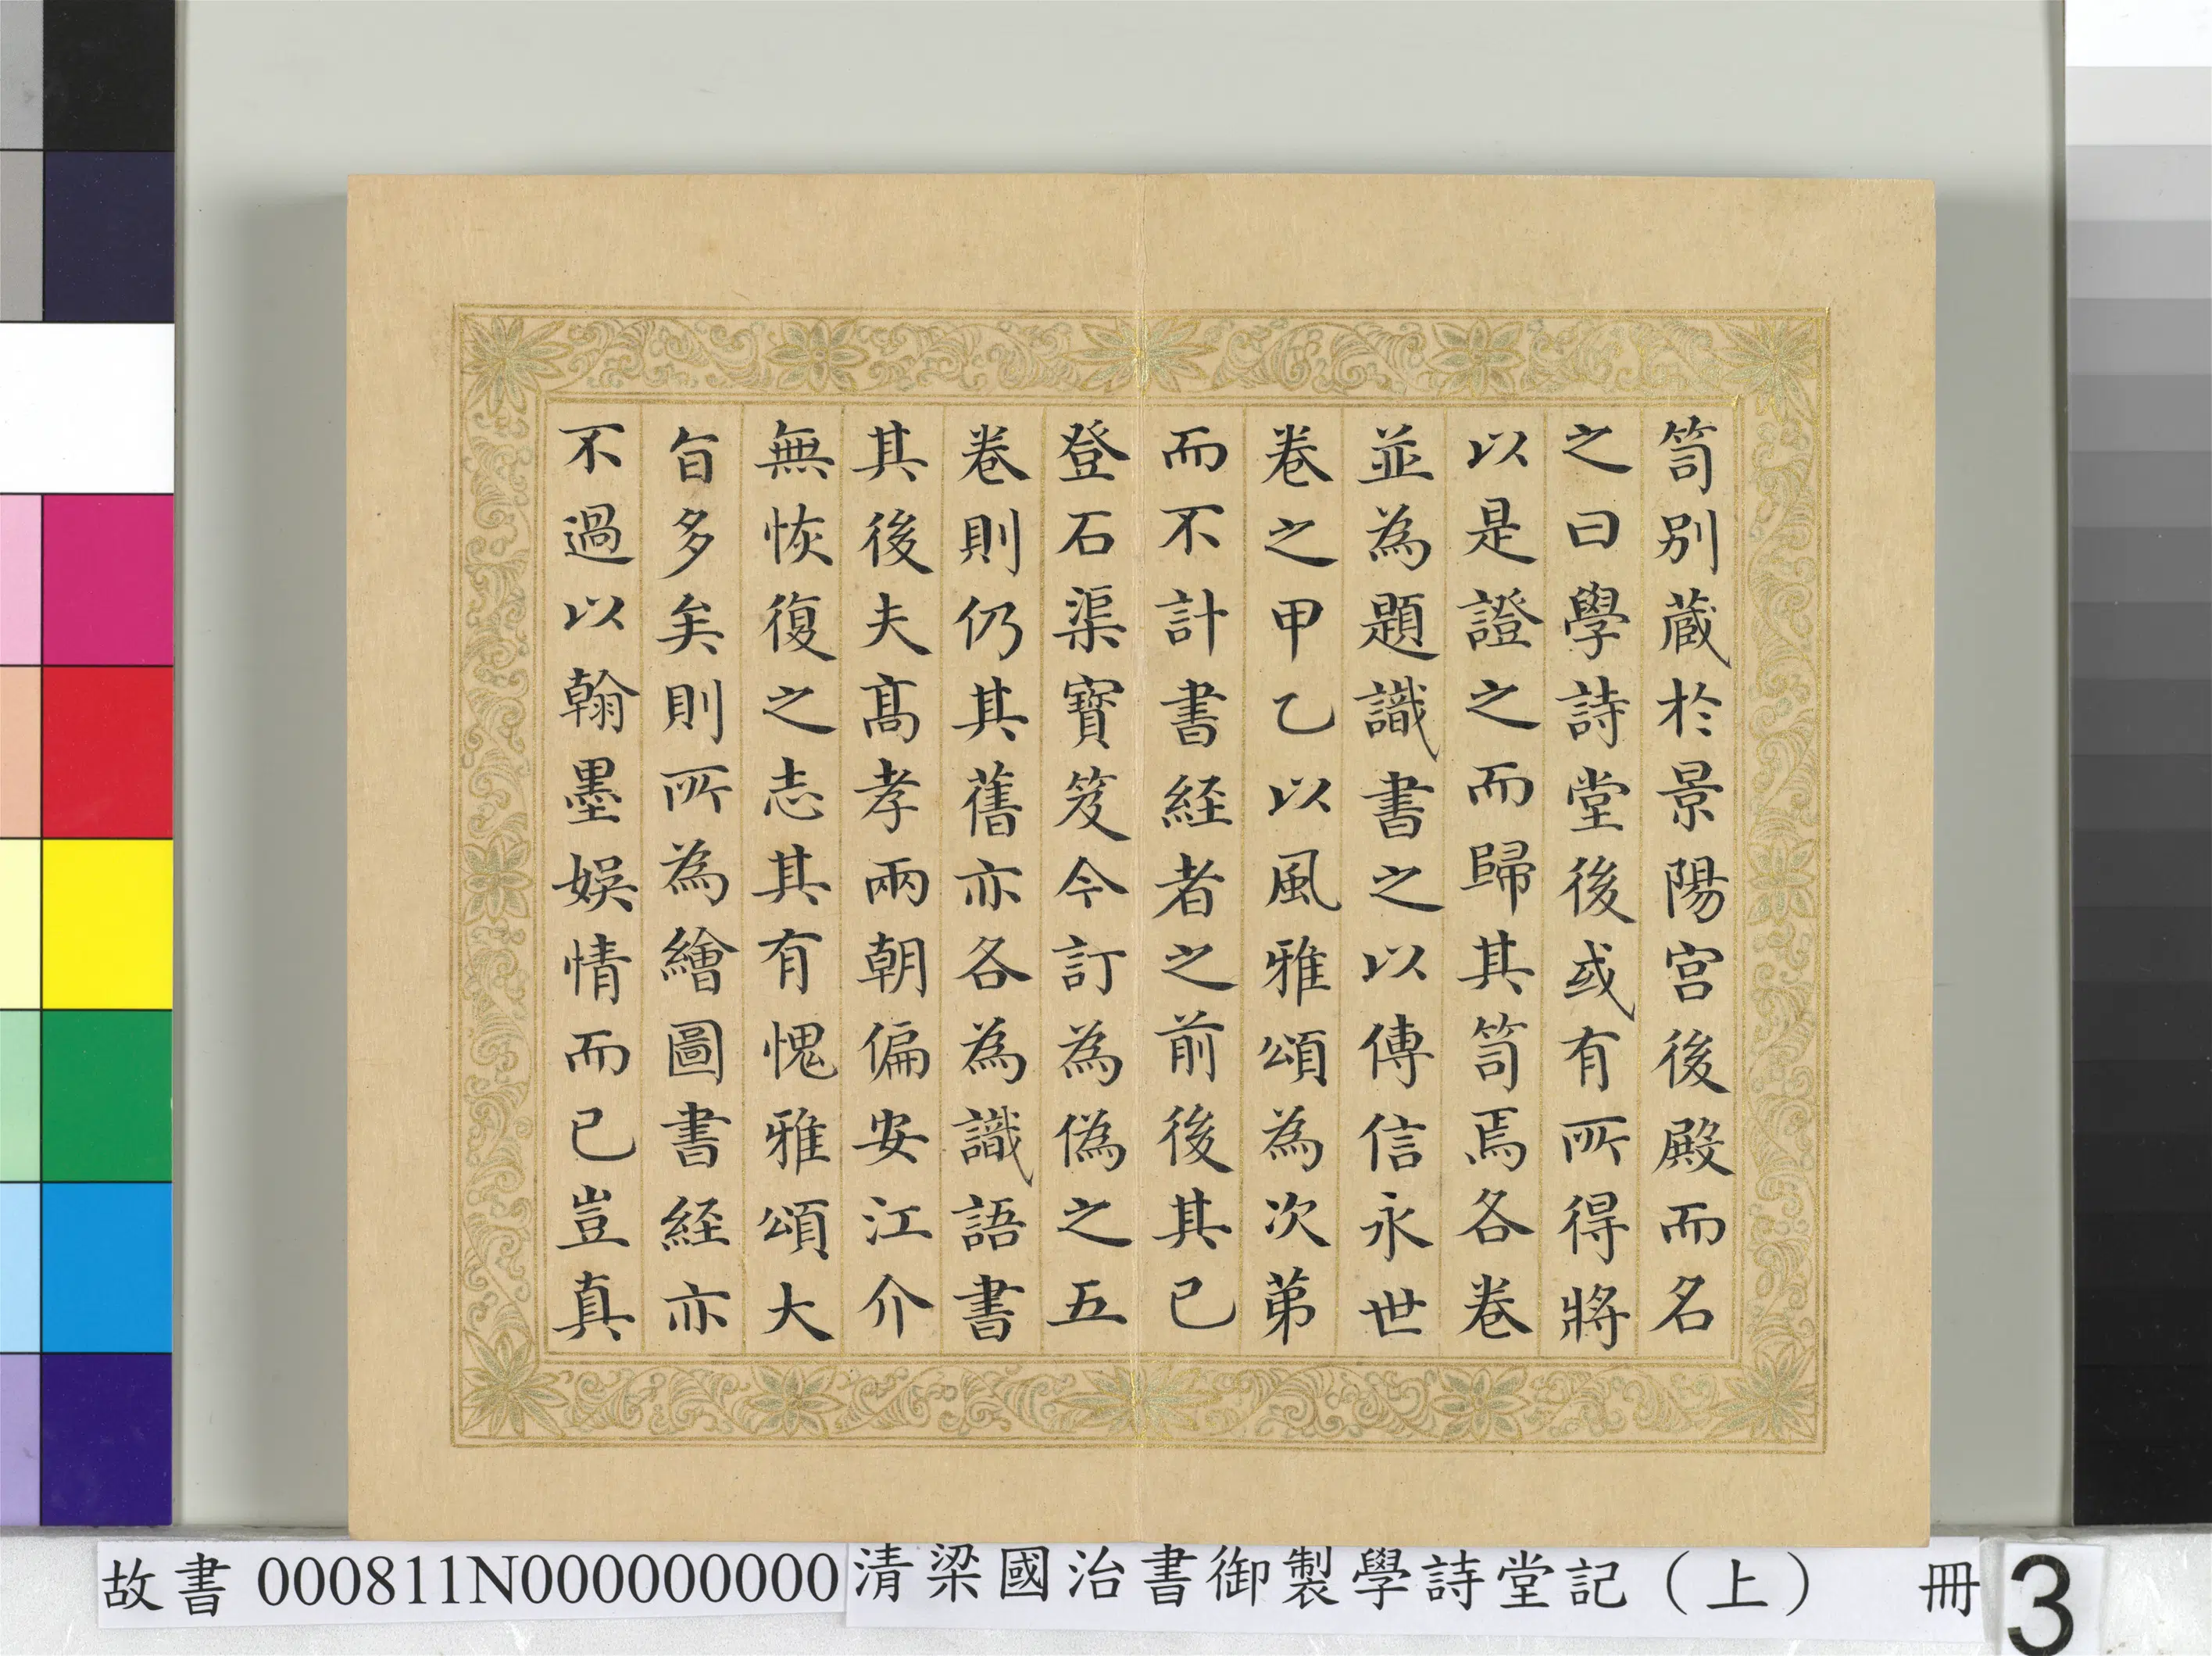 笥別蔵於景陽宮後殿而名
之曰學詩堂後或有所得將
以是證之而歸其笥焉各卷
並為題識書之以傳信永世
卷之甲乙以風雅頌為次苐
而不計書経者之前後其已
登石渠寳笈今訂為偽之五
卷則仍其舊亦各為識語書
其後夫髙孝兩朝偏安江介
無恢復之志其有愧雅頌大
旨多矣則所為繪圖書経亦
不過以翰墨娛情而已豈真
故書 000811N000000000 清梁國治書御製學詩堂記（上） 冊 3